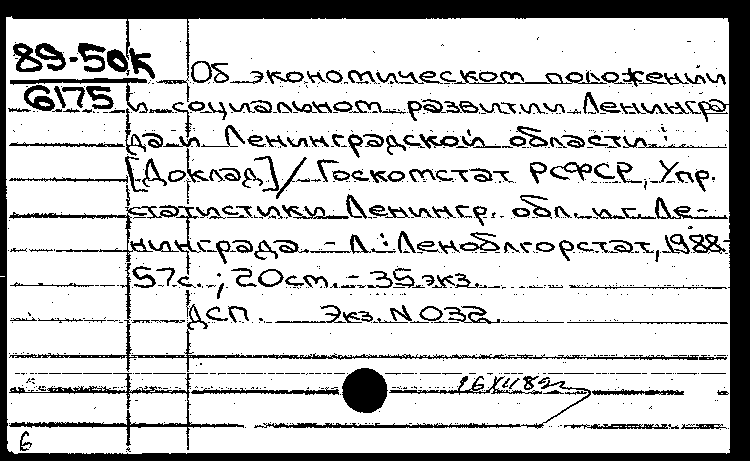 89-50К
6175
Об экономическом положении
и социальном развитии Ленингра
да и Ленинградской области :
[Доклад] / Госкомстат РСФСР, Упр.
статистики Ленингр. обл. и г. Ле-
нинграда. - Л. : Леноблгорстат, 1988-
57с. ; 20 см. - 35 экз.
ДСП. Экз. N 032.
6